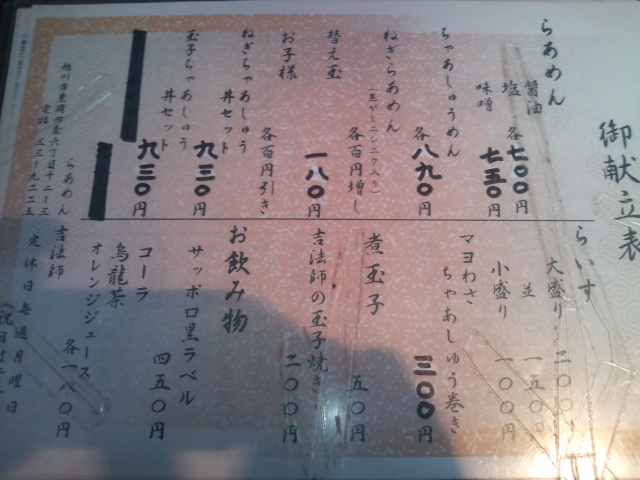 御献立表
らあめん
醤油
塩 各七〇〇円
味噌 七五〇円
ちゃあしゅうめん 各八九〇円
ねぎらあめん(焦がしニンニク入り) 各百円増し
替え玉 一八〇円
お子様 各百円引き
ねぎちゃあしゅう
丼セット 九三〇円
玉子ちゃあしゅう
丼セット 九三〇円
円
らいす
大盛り 二〇〇
並 一五〇円
小盛り 一〇〇円
マヨわさ
ちゃあしゅう巻き 三〇〇円
煮玉子 五〇円
吉法師の玉子焼き 二〇〇円
お飲み物
サッポロ黒ラベル 四五〇円
コーラ
烏龍茶
オレンジジュース 各一八〇円
らあめん 吉法師
旭川市豊岡四条六丁目十二ー三
電話 三三ー九二二五
定休日 毎週月曜日
(祝日は